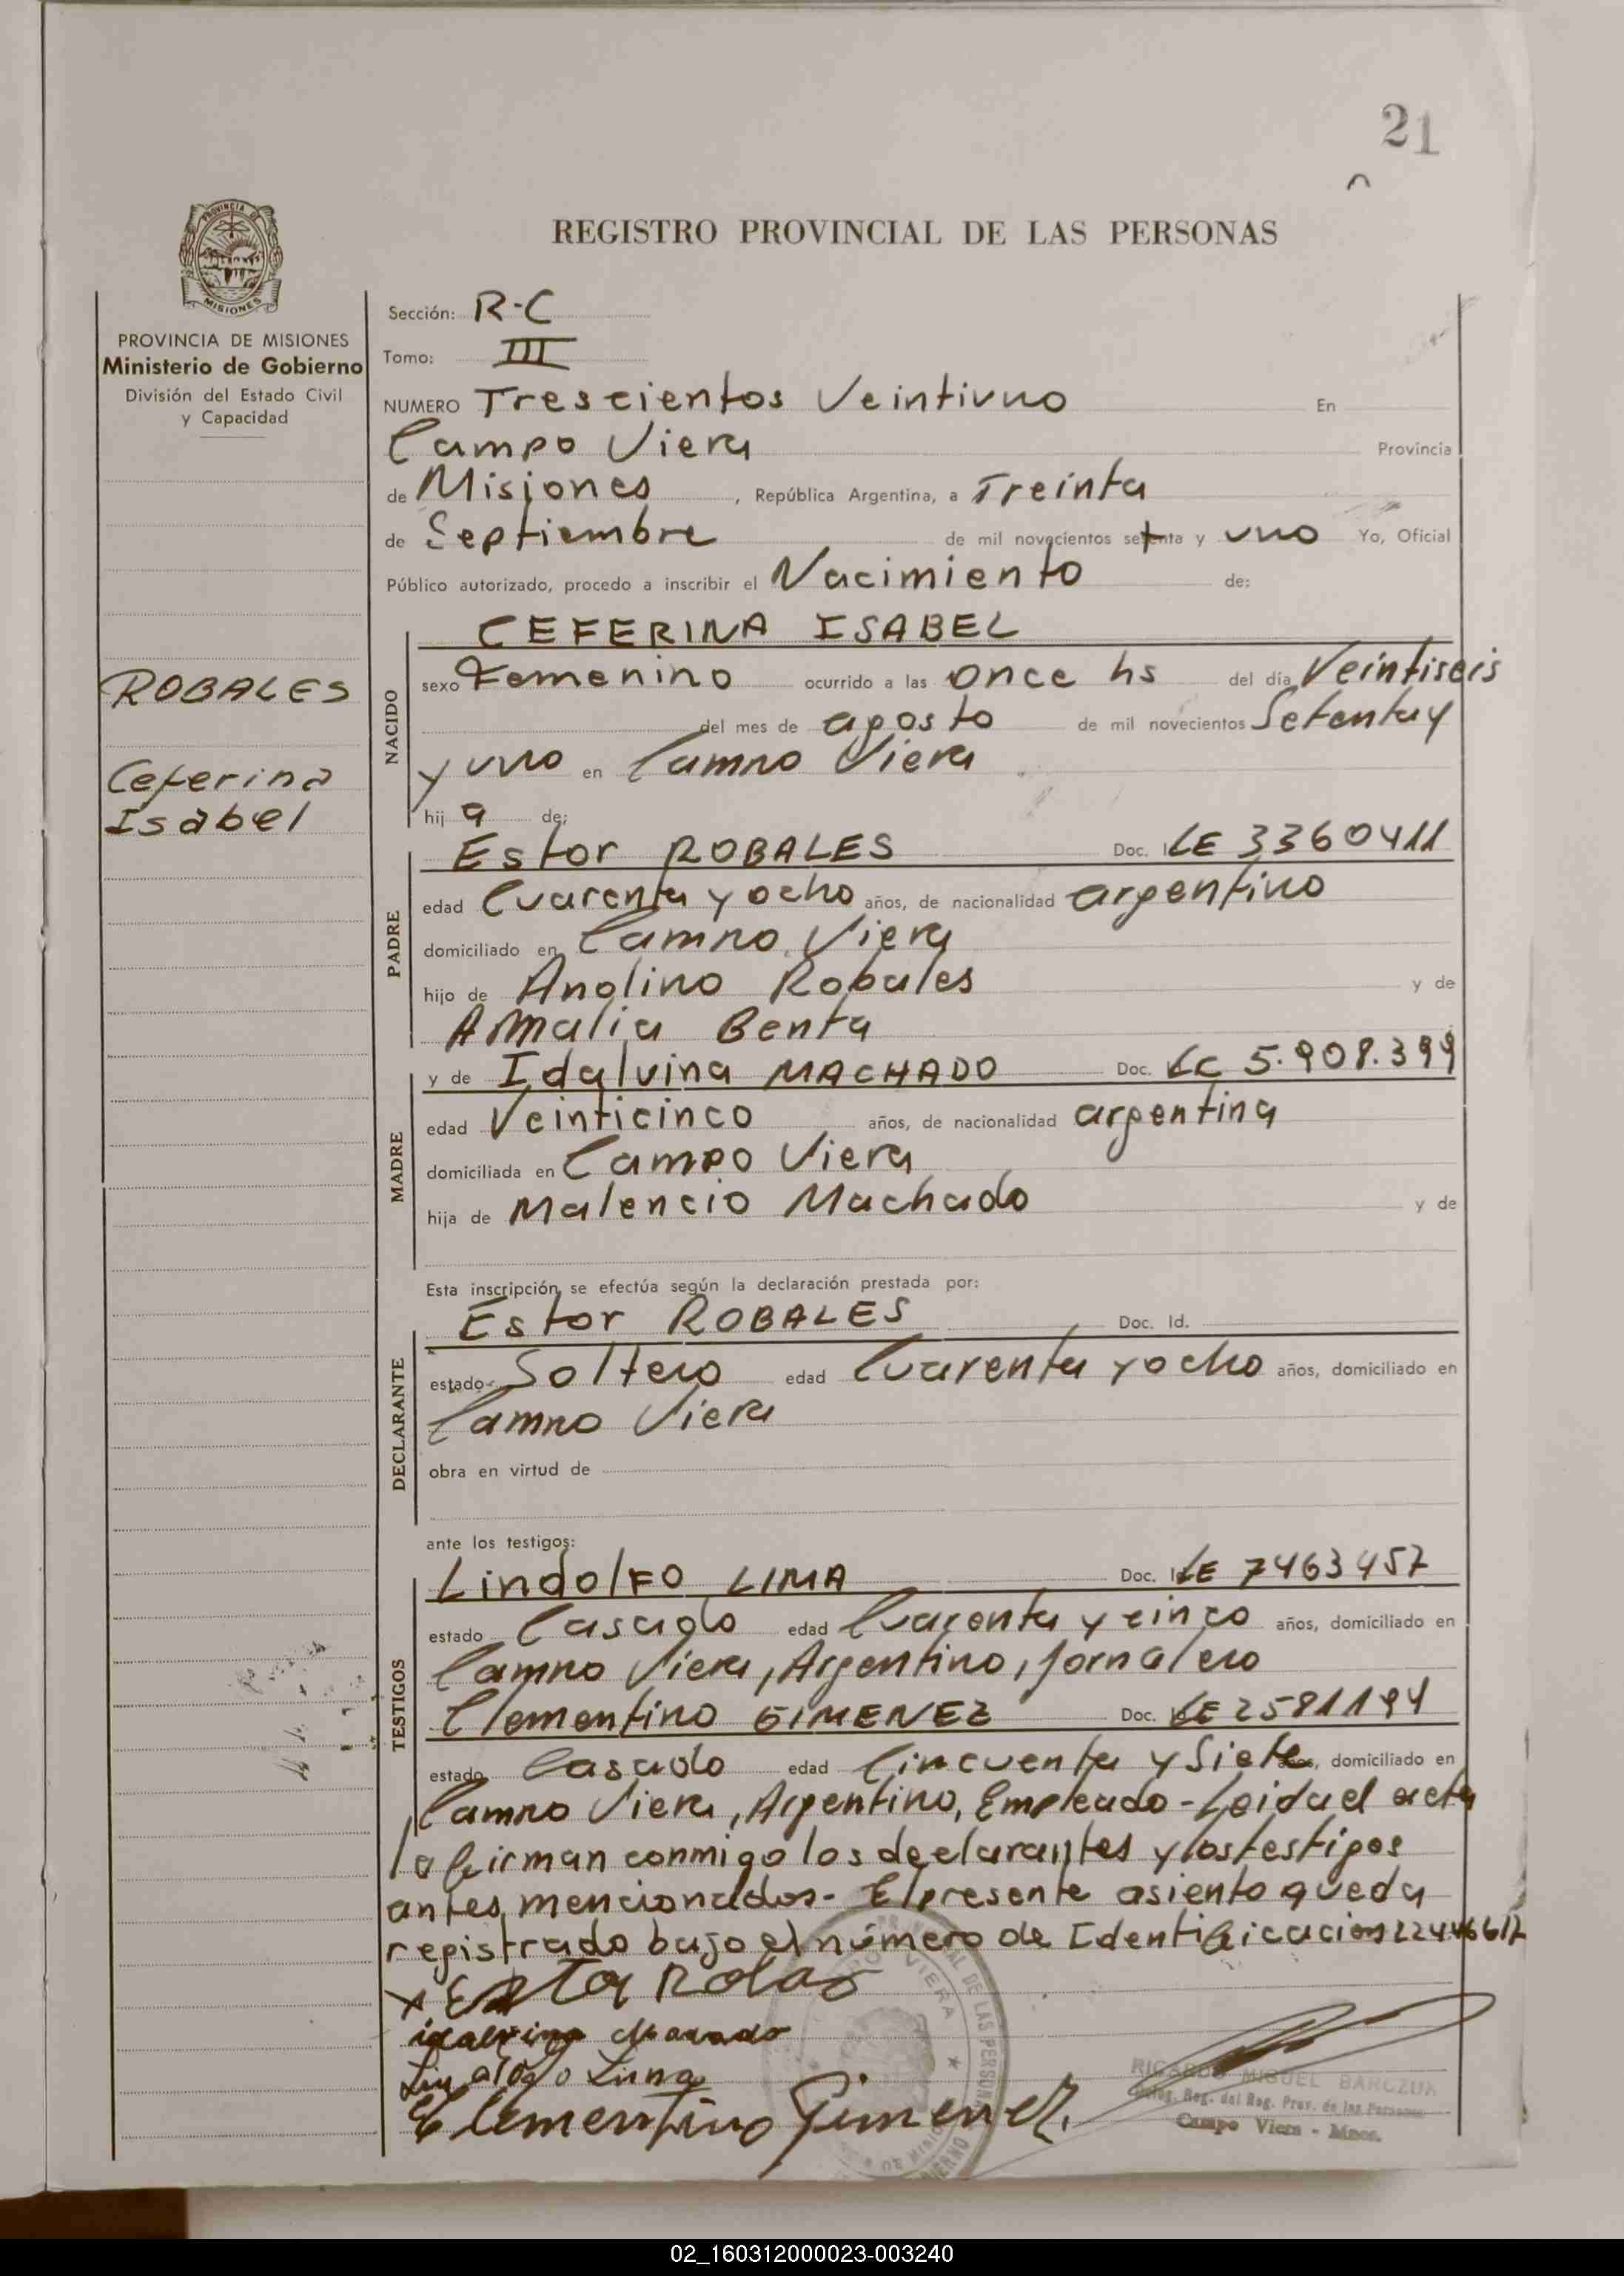 21
REGISTRO PROVINCIAL DE LAS PERSONAS
PROVINCIA DE
MISIONES
PROVINCIA DE MISIONES
Ministerio de Gobierno
División del Estado Civil
y Capacidad
ROBALES
Ceferina
Isabel
Sección: R-C
Tomo: III
NUMERO Trescientos Veintiuno En
Campo Viera Provincia
de Misiones, República Argentina, a Treinta
de Septiembre de mil novecientos setenta y uno Yo, Oficial
Público autorizado, procedo a inscribir el Nacimiento de:
NACIDO
CEFERINA ISABEL
sexo Femenino ocurrido a las once hs del día Veintiseis
del mes de agosto de mil novecientos Setenta y
y uno en Campo Viera
hij a de:
PADRE
Estor ROBALES Doc. LE 3360411
edad Cuarenta y ocho años, de nacionalidad argentino
domiciliado en Campo Viera
hijo de Anolino Robales y de
Amalia Benta
MADRE
y de Idalvina MACHADO Doc. LC 5.908.399
edad Veinticinco años, de nacionalidad argentina
domiciliada en Campo Viera
hija de Malencio Machado y de
Esta inscripción se efectúa según la declaración prestada por:
DECLARANTE
Estor ROBALES Doc. Id.
estado Soltero edad Cuarenta y ocho años, domiciliado en
Campo Viera
obra en virtud de
ante los testigos:
TESTIGOS
Lindolfo LIMA Doc. LE 7463457
estado Casado edad Cuarenta y cinco años, domiciliado en
Campo Viera, Argentino, jornalero
Clementino GIMENEZ Doc. LE 2581194
estado Casado edad Cincuenta y Siete años, domiciliado en
Campo Viera, Argentino, Empleado - Leida el acta
la firman conmigo los declarantes y los testigos
antes mencionados - El presente asiento queda
registrado bajo el número de Identificacion
idalvina
Clementino Gimenez.
RICARDO MIGUEL BARCZUK
Deleg. Reg. del Reg. Prov. de las Personas
Campo Viera - Mnes.
02_160312000023-003240